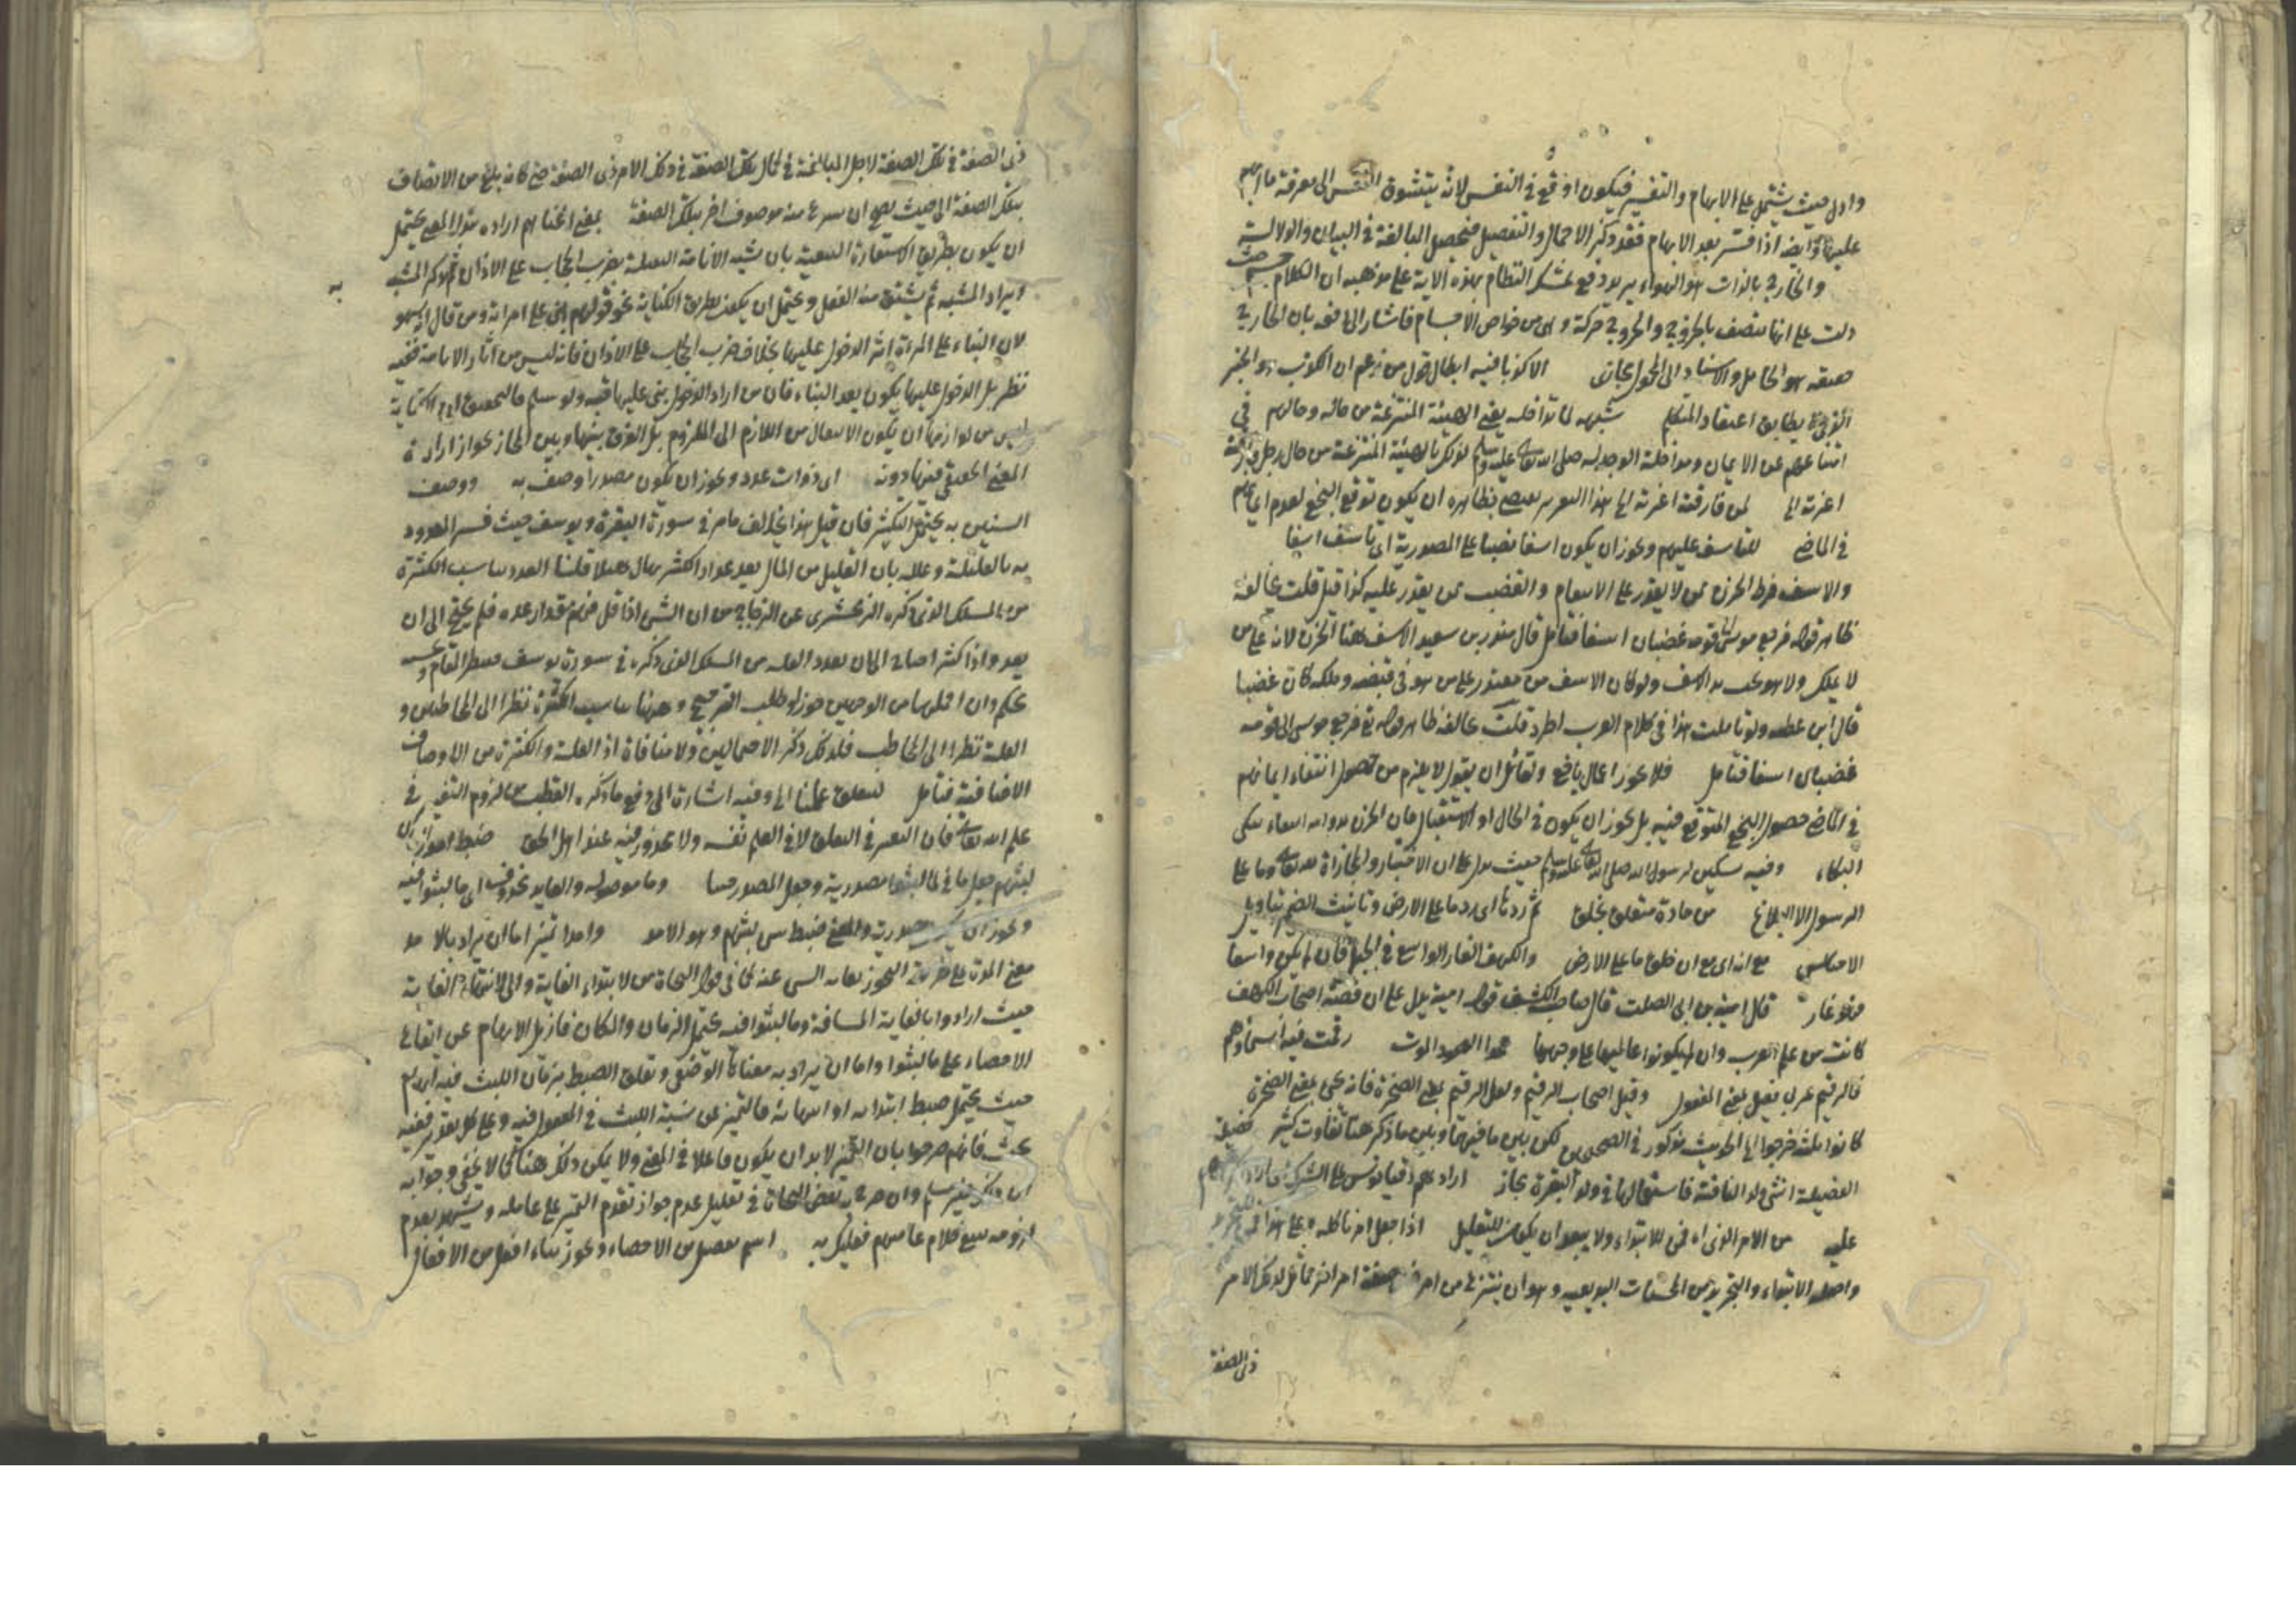 وادل حيث يشتمل على الابهام والتفسير فيكون اوقع في النفس لانه يتشوق النفس الى معرفة ما ابهم
عليها وايضا اذا فسر بعد الابهام فقد ذكر الاجمال والتفصيل فيحصل المبالغة في البيان والدلالة
والخارج بالذات هو الهواء يريد دفع تمسك النظام بهذه الاية على مذهبه ان الكلام جسم حيث
دلت على انها تتصف بالخروج والخروج حركة وهي من خواص الاجسام فاشار الى دفعه بان الخارج
حقيقة هو الحامل والاسناد الى المحمول مجازى الا كذبا فيه ابطال قول من زعم ان الكذب هو الخبر
الذي لا يطابق اعتقاد المتكلم شبهه لما تداخله يعني الهيئة المنتزعة من حاله وحالهم في
امتناعهم عن الايمان ومداخلة الوجد له صلى الله تعالى عليه وسلم لذلك بالهيئة المنتزعة من حال رجل فارقته
اعزته الى لمن فارقته اعزته الى هذا التقرير يقتضي بظاهره ان يكون توقع البخع لعدم ايمانهم
في الماضي للتاسف عليهم ويجوز ان يكون اسفا نصبا على المصدرية اى تاسف اسفا
والاسف فرط الحزن ممن لا يقدر على الانتقام والغضب ممن يقدر عليه كذا قيل قلت يخالفه
ظاهر قوله فرجع موسى الى قومه غضبان اسفا فتامل قال منذر بن سعيد الاسف هنا الحزن لانه على من
لا يملك ولا هو تحت يد الاسف ولو كان الاسف من مقتدر على من هو في قبضته وملكه كان غضبا
قال ابن عطية ولو تاملت هذا في كلام العرب اطرد قلت يخالفه ظاهر قوله تع فرجع موسى الى قومه
غضبان اسفا فتامل فلا يجوز اعمال باخع ولقائل ان يقول لا يلزم من حصول انتفاء ايمانهم
في الماضي حصول البخع المتوقع فيه بل يجوز ان يكون في الحال او الاستقبال فان الحزن
البكاء وفيه تسكين لرسول الله صلى الله تعالى عليه وسلم حيث يدل على ان الاختبار والمجازاة لله تعالى وما على
الرسول الا البلاغ من مادة متعلق بخلق ثم ردها اى رد ما على الارض وتانيث الضمير بتاويل
مع انه اى مع ان خلق ما على الارض والكهف الغار الواسع في الجبل فان لم يكن واسعا
فهو غار قال امية بن ابى الصلت قال صاحب الكشف قول امية يدل على ان قصة اصحاب الكهف
كانت من علم العرب وان لم يكونوا عالميها على وجهها رقمت فيه اسماؤهم
فالرقيم عربى فعيل بمعنى المفعول وقيل اصحاب الرقيم ولعل الرقيم بمعنى الصخرة فانه يجئ بمعنى الصخرة
كانوا ثلثة خرجوا الى الحديث مذكور في الصحيحين لكن بين ما فيهما وبين ما ذكر هنا تفاوت كثير
الفصيلة انثى ولد الناقة فاستعمالها في ولد البقرة مجاز ارادهم دقيانوس على الشرك
عليه من الامر الذى اه فمن للابتداء ولا يبعد ان يكون للتعليل اذا جعل امرنا كله وعلى هذا
واصله الابتداء والتجريد من المحسنات البديعية وهو ان ينتزع من امر ذى صفة امر اخر مماثل لذلك الامر
ذى الصفة
ذى الصفة في تلك الصفة لاجل المبالغة في كمال تلك الصفة في ذلك الامر ذى الصفة حتى كانه بلغ من الاتصاف
بتلك الصفة الى حيث يصح ان ينتزع منه موصوف اخر بتلك الصفة بمعنى انمناهم ارادة هذا المعنى يحتمل
ان يكون بطريق الاستعارة التبعية بان شبه الانامة الثقيلة بضرب الحجاب على الاذان ثم ذكر المشبه به
ويراد المشبه ثم يشتق منه الفعل ويحتمل ان يكون بطريق الكناية نحو قولهم بنى على امراته ومن قال انه سهو
لان البناء على المرءة اثر الدخول عليها بخلاف ضرب الحجاب على الاذان فانه ليس من اثار الانامة ففيه
نظر بل الدخول عليها يكون بعد البناء فان من اراد الدخول بنى عليها قبة ولو سلم فالتحقيق ان الكناية
ليس من لوازمها ان يكون الانتقال من اللازم الى الملزوم بل الفرق بينها وبين المجاز بجواز ارادة
المعنى الحقيقي فيها دونه اى ذوات عدد ويجوز ان يكون مصدرا وصف به ووصف
السنين به يحتمل التكثير فان قيل هذا يخالف ما مر في سورة البقرة ويوسف حيث فسر المعدود
به بالقليلة وعلله بان القليل من المال يعد عدا والكثير يهال هيلا قلنا العدد يناسب الكثرة
من المسلك الذى ذكره الزمخشرى عن الزجاج من ان الشئ اذا قل فهم مقدار عده فلم يحتج الى ان
يعد واذا كثر احتاج الى ان يعد والقلة من المسلك الذى ذكره في سورة يوسف
وان احتملهما من الوجهين جوز لطلب الترجيح وههنا يناسب الكثرة نظرا الى المخاطبين و
القلة نظرا الى المخاطب فلذلك ذكر الاحتمالين ولا منافاة اذ القلة والكثرة من الاوصاف
الاضافية فتامل ليتعلق علمنا اى وفيه اشارة الى دفع ما ذكره القطب من لزوم التغير في
علم الله تعالى فان التغير في التعلق لا في العلم نفسه ولا محذور فيه عند اهل الحق ضبط امدا زمان
لبثهم جعل ما في لما لبثوا مصدرية وجعل المصدر حينا وما موصولة والعايد محذوف اى ما لبثوا فيه
ويجوز ان يكون مصدرية والمعنى ضبط من لبثهم وهو الامد وامدا تميز اما ان يراد بالامد
معنى المدة على طريقة التجوز بغاية الشئ عنه كما في قول النحاة من لابتداء الغاية والى لانتهاء الغاية
حيث ارادوا بالغاية المسافة وما لبثوا فيه يحتمل الزمان والمكان فازيل الابهام عن ايقاع
الاحصاء على ما لبثوا واما ان يراد به معناها الوضعى وتعلق الضبط بزمان اللبث فيه ابهام
حيث يحتمل ضبط ابتدائه او انتهائه فالتميز عن نسبة اللبث في المفعول فيه وعلى كل تقدير ففيه
بحث فانهم صرحوا بان التميز لابد ان يكون فاعلا في المعنى ولا يمكن ذلك هنا كما لا يخفى وجوابه
ان ذلك غير مسلم وان صرح به بعض النحاة في تعليل عدم جواز تقدم التميز على عامله ويشهد بعدم
لزومه تتبع كلام عامتهم فعليك به اسم تفضيل من الاحصاء ويجوز بناء افعل من الافعال